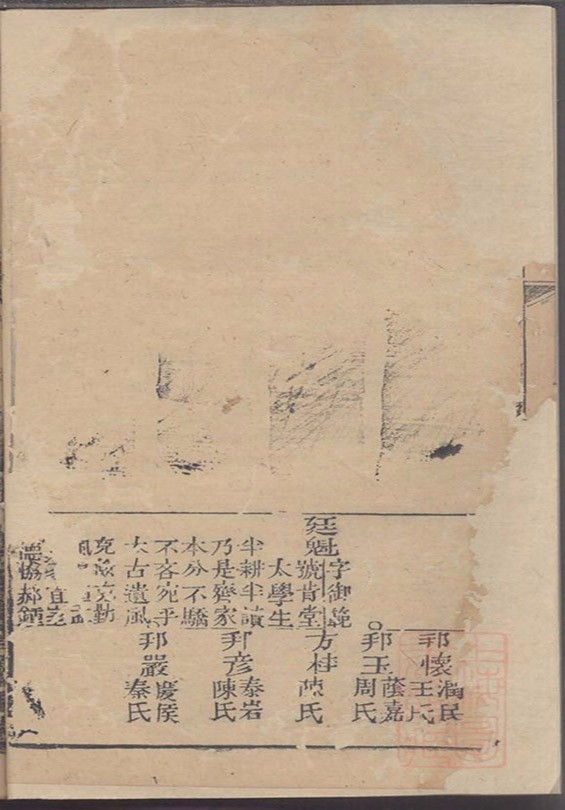 廷魁
字御範
號肯堂
太學生
半耕半讀
乃是齊家
本分不驕
不吝宛乎
太古遺風
克勤
宜
協郝鍾
邦懷
潤民
王氏
邦玉
蔭嘉
周氏
方桂
陳氏
邦彦
泰岩
陳氏
邦嚴
慶侯
秦氏